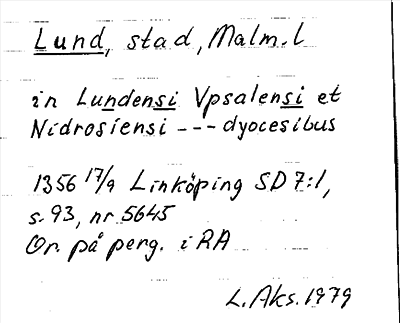 Lund, stad, Malm.l
in Lundensi Vpsalensi et
Nidrosiensi --- dyocesibus
1356 17/9 Linköping SD 7:1,
s. 93, nr 5645
Or. på perg. i RA
L. Aks. 1979